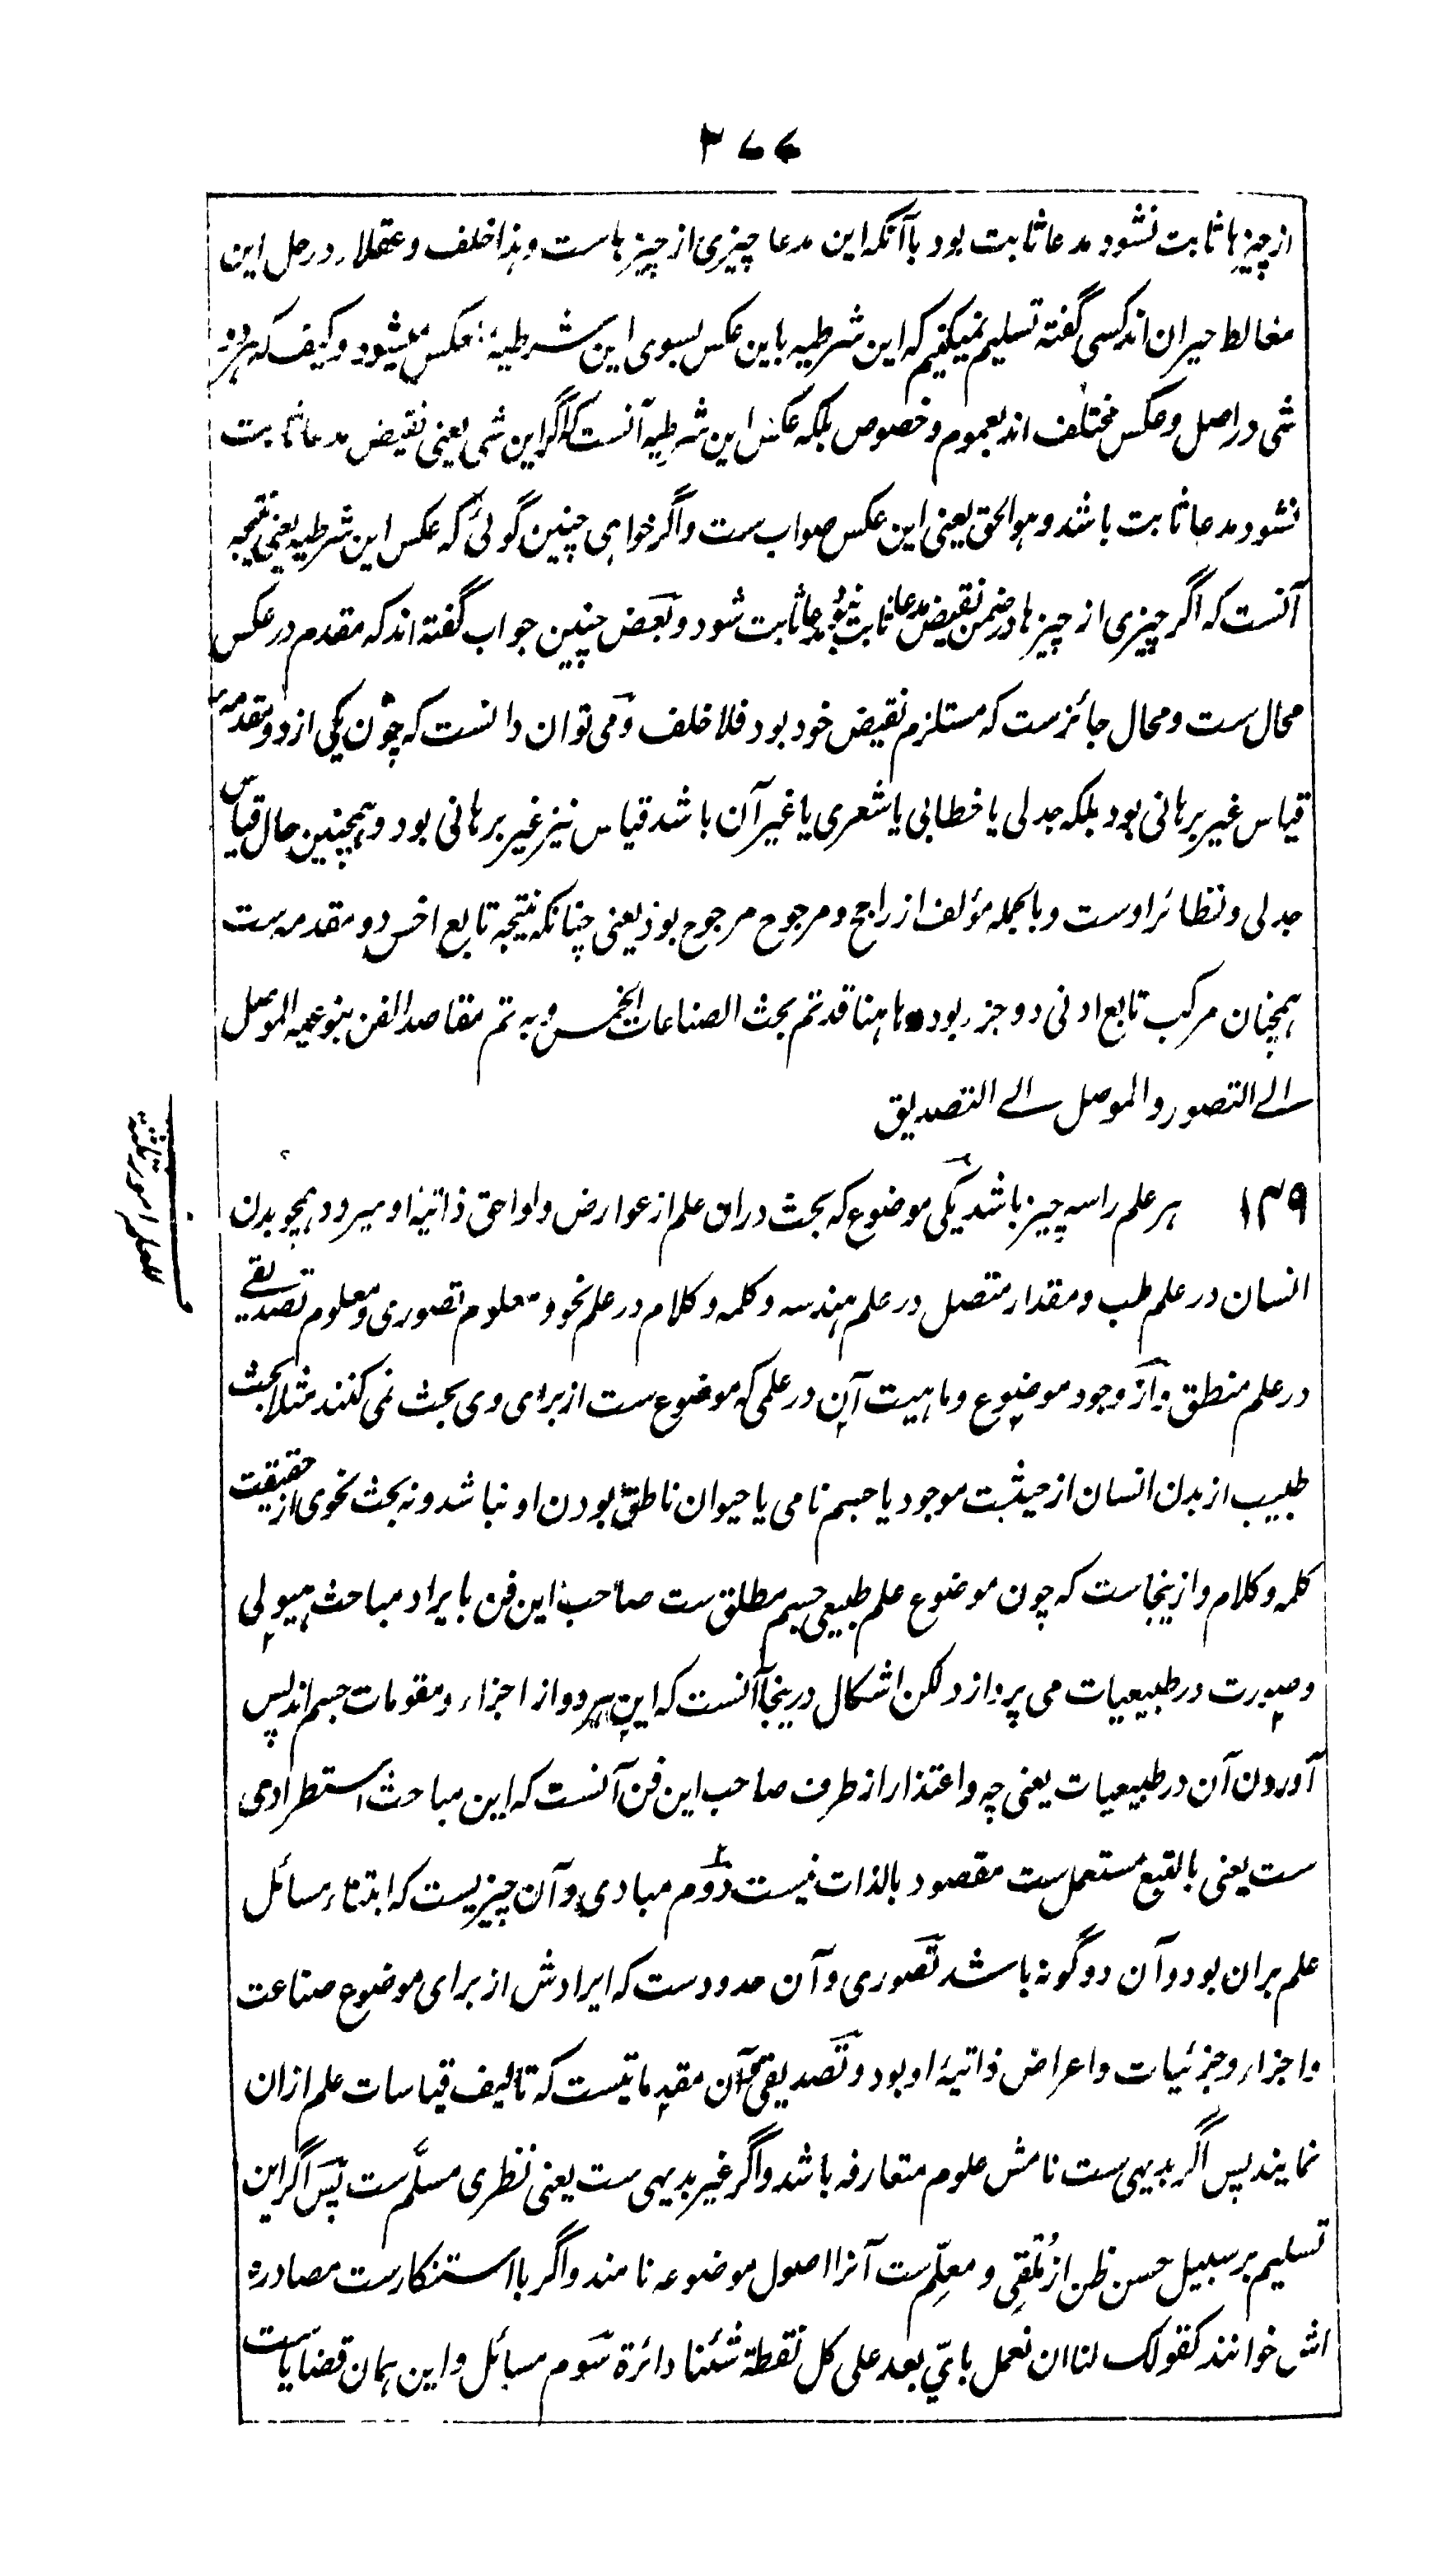 از چیزها ثابت نشود مدعا ثابت بود با آنکه این مدعا چیزی از چیزهاست و هذا خلف و عقلاء در حل این
مغالط حیران اند کسی گفته تسلیم نمیکنیم که این شرطیه باین عکس بسوی این شرطیهٔ منعکس میشود و کیف که هر دو
شی در اصل و عکس مختلف اند بعموم و خصوص بلکه عکس این شرطیه آنست که اگر این شی یعنی نقیض مدعا ثابت
نشود مدعا ثابت باشد و هو الحق یعنی این عکس صواب ست و اگر خواهی چنین گوئی که عکس این شرطیه یعنی نتیجه
آنست که اگر چیزی از چیزها در ضمن نقیض مدعا ثابت نشود مدعا ثابت شود و بعض چنین جواب گفته اند که مقدم در عکس
محال ست و محال جائزست که مستلزم نقیض خود بود فلا خلف و می توان دانست که چون یکی از دو مقدمه
قیاس غیر برهانی بود بلکه جدلی یا خطابی یا شعری یا غیر آن باشد قیاس نیز غیر برهانی بود و همچنین حال قیاس
جدلی و نظائر اوست و بالجمله مؤلف از راجح و مرجوح مرجوح بود یعنی چنانکه نتیجه تابع اخس دو مقدمه ست
همچنان مرکب تابع ادنی دو جزء بود هاهنا قد تم بحث الصناعات الخمس و به تم مقاصد الفن بنوعیه الموصل
الے التصور و الموصل الے التصدیق
۱۳۹ هر علم را سه چیز باشد یکی موضوع که بحث دران علم از عوارض و لواحق ذاتیهٔ او میرود همچو بدن
انسان در علم طب و مقدار متصل در علم هندسه و کلمه و کلام در علم نحو و معلوم تصوری و معلوم تصدیقے
در علم منطق و از وجود موضوع و ماهیت آن در علمی که موضوع ست از برای وی بحث نمی کنند مثلا بحث
طبیب از بدن انسان از حیثیت موجود یا جسم نامی یا حیوان ناطق بودن او نباشد و نه بحث نحوی از حقیقت
کلمه و کلام و ازینجاست که چون موضوع علم طبیعی جسم مطلق ست صاحب این فن بایراد مباحث هیولی
و صورت در طبیعیات می پردازد لکن اشکال درینجا آنست که این هر دو از اجزاء و مقومات جسم اند پس
آوردن آن در طبیعیات یعنی چه و اعتذار از طرف صاحب این فن آنست که این مباحث استطرادی
ست یعنی بالتبع مستعمل ست مقصود بالذات نیست دوم مبادی و آن چیزیست که ابتناء مسائل
علم بران بود و آن دو گونه باشد تصوری و آن حدودست که ایرادش از برای موضوع صناعت
و اجزاء و جزئیات و اعراض ذاتیهٔ او بود و تصدیقی و آن مقدماتیست که تالیف قیاسات علم ازان
نمایند پس اگر بدیهی ست نامش علوم متعارفه باشد و اگر غیر بدیهی ست یعنی نظری مسلّم ست پس اگر این
تسلیم بر سبیل حسن ظن از مُلقی و معلِّم ست آنرا اصول موضوعه نامند و اگر با استنکارست مصادره
اش خوانند کقولک لنا ان نعمل بایّ بعد علی کل نقطة شئنا دائرة سوم مسائل و این همان قضایاست